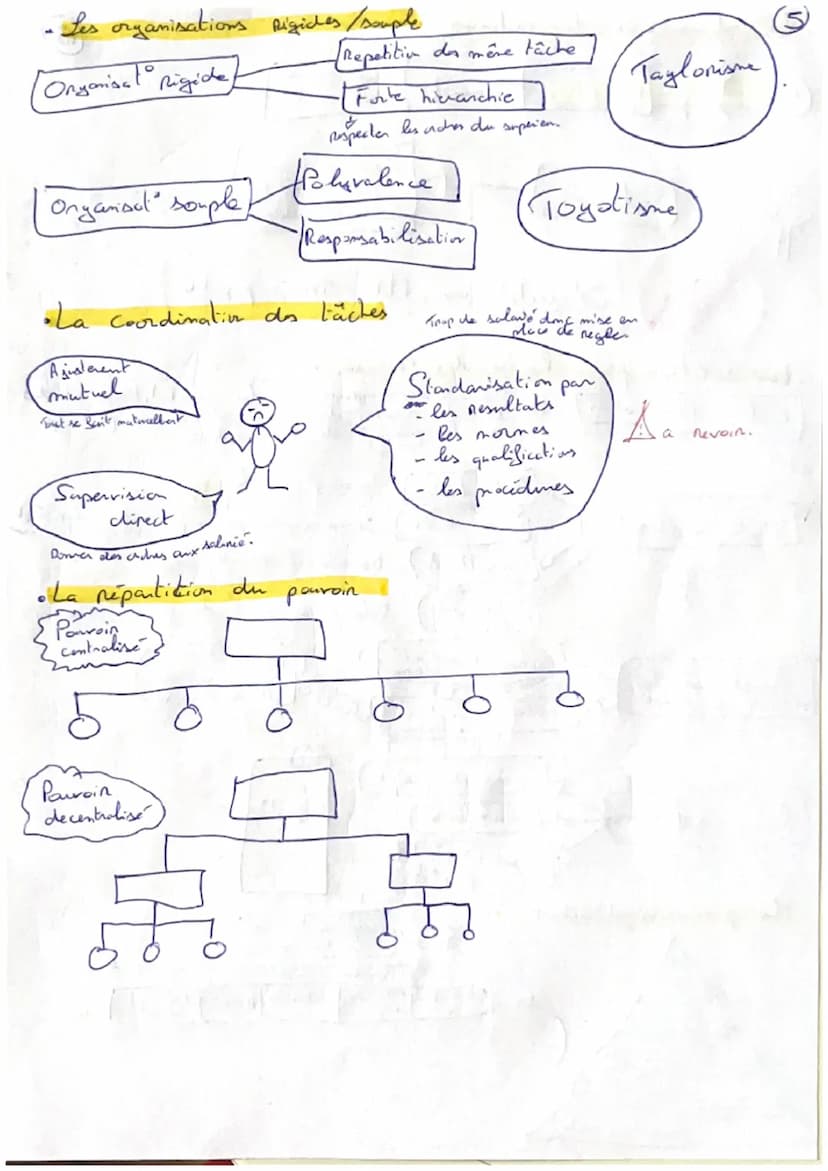 5
• Les organisations Rigides/souple
Organisat° Rigide
Repetition des même tâche
Forte hierarchie
Respecter les ordres du superieur.
Taylorisme
Organisat° souple
Polyvalence
Responsabilisation
Toyotisme
• La coordination des tâches
Trop de salarié donc mise en
place de regles
Ajustement
mutuel
Tout se fait naturellement
Supervision
direct
Donner des ordres aux salarié.
Standarisation par
- les Resultats
- les normes
- les qualifications
- les procédures
! a revoir.
• La répartition du pouvoir
Pouvoir
centralisé
Pouvoir
decentralisé